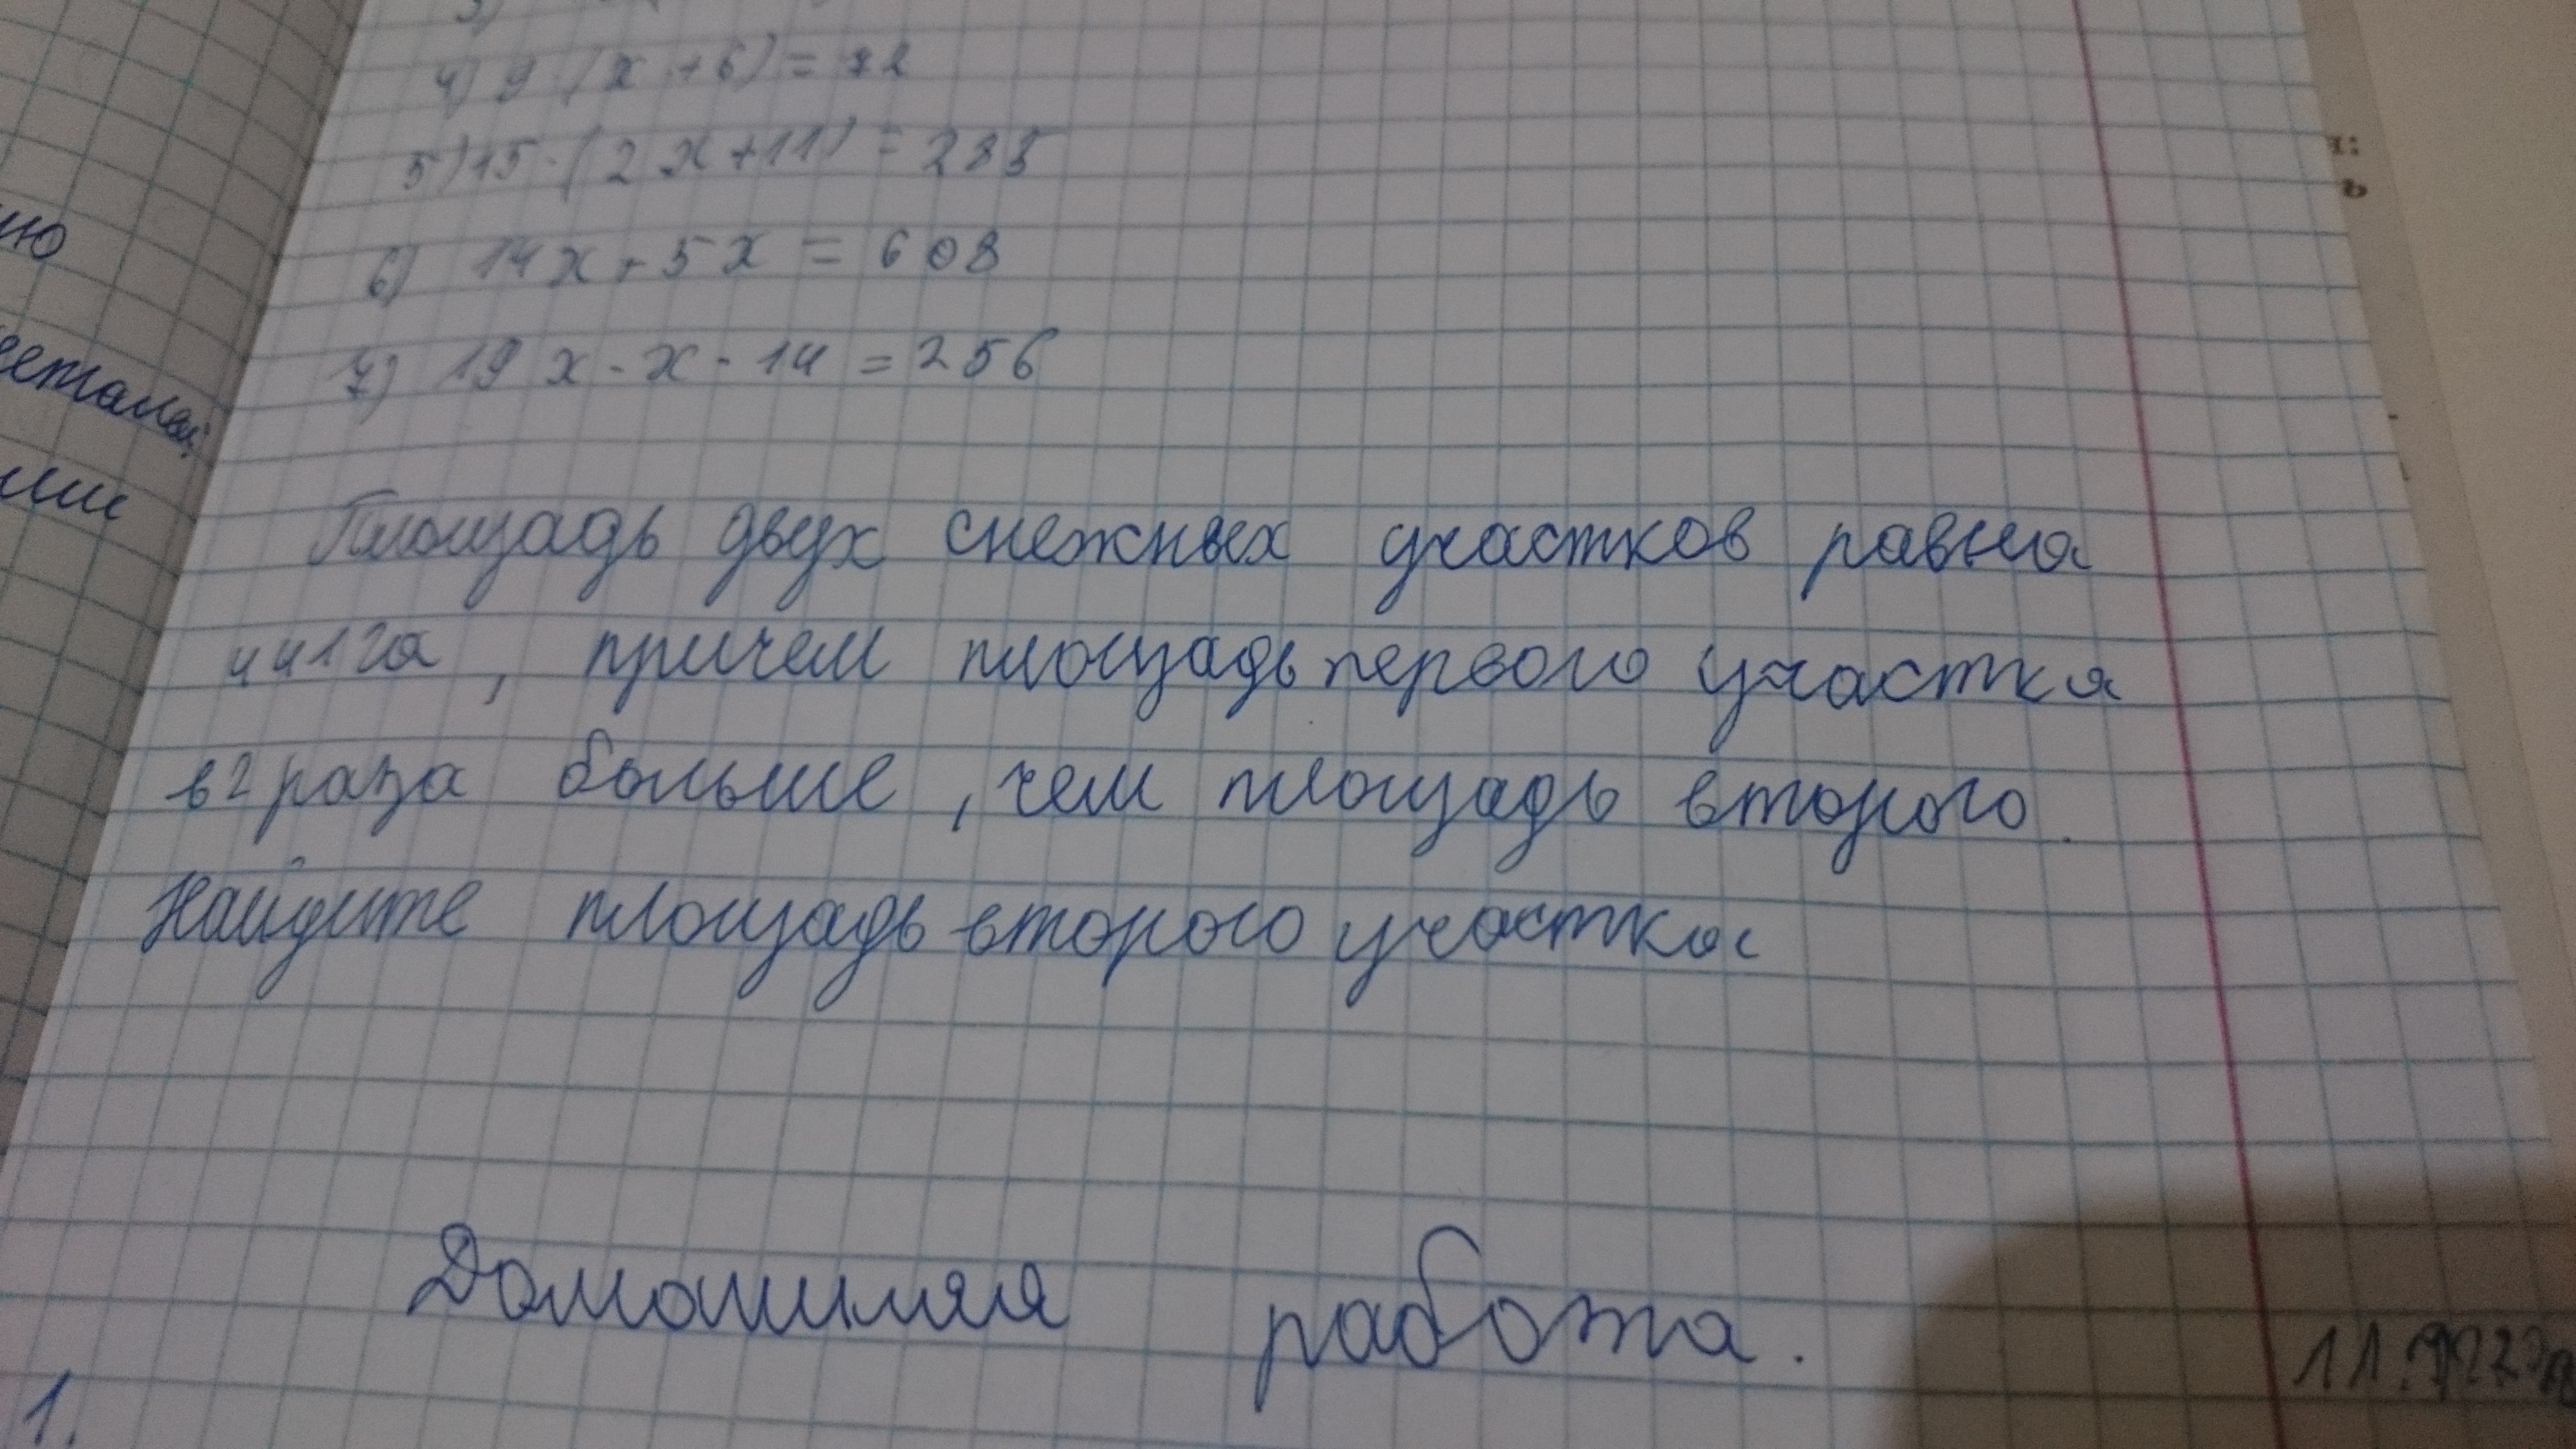 4) 9 · (x + 6) = 72
5) 15 · (2x + 11) = 285
6) 14x + 5x = 608
7) 19x - x - 14 = 256
Площадь двух снежных участков равна
441 га, причем площадь первого участка
в 2 раза больше, чем площадь второго.
Найдите площадь второго участка
Домашняя работа.
1.